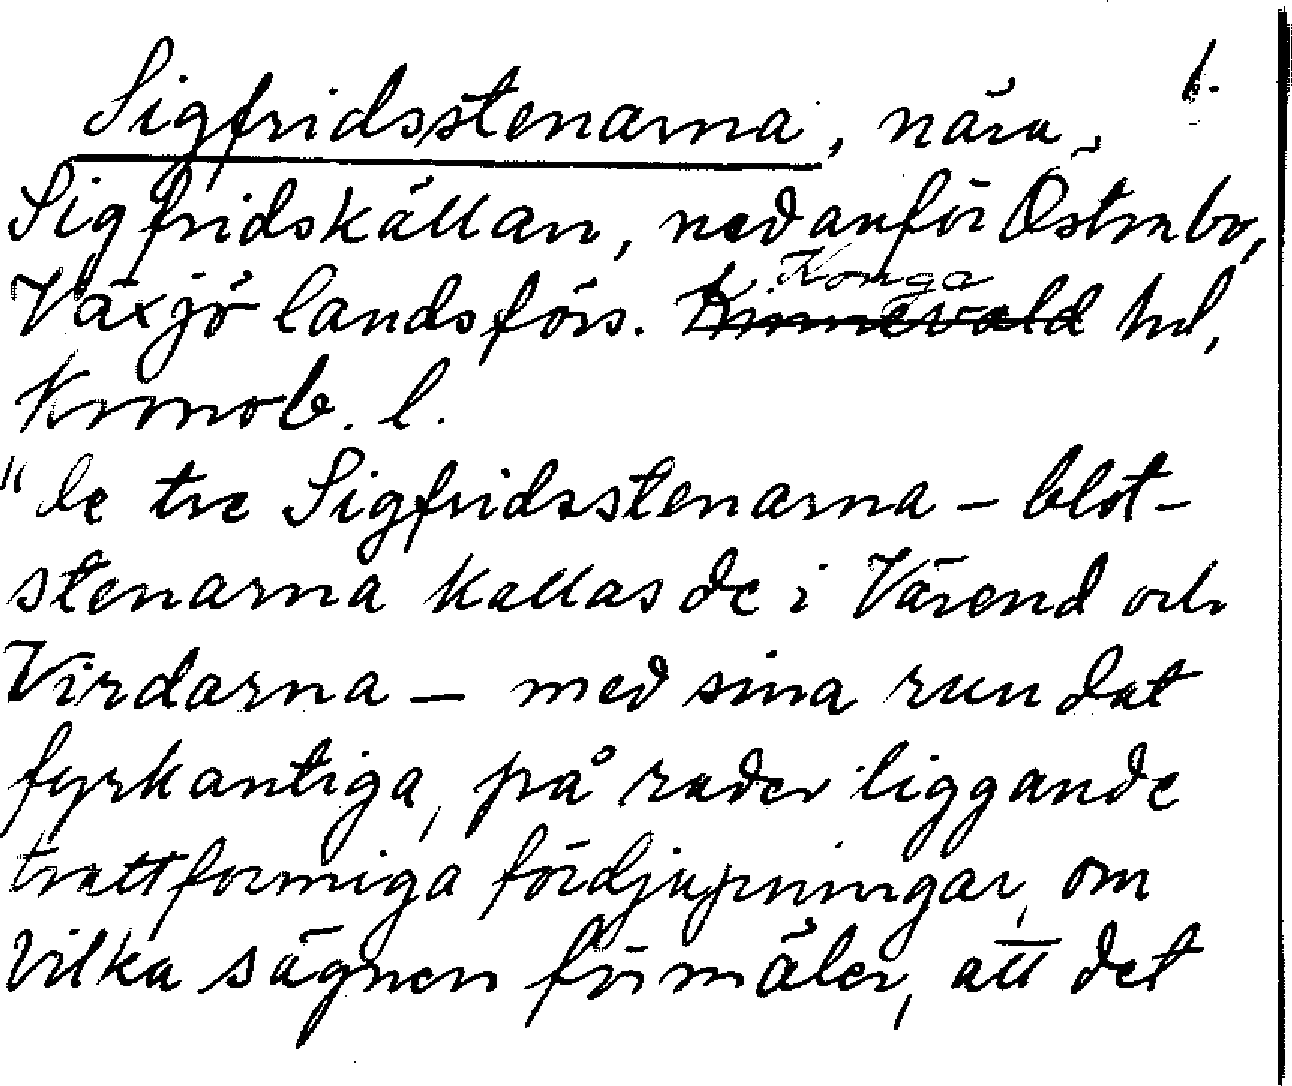 1.
Sigfridsstenarna, nära
Sigfridskällan, nedanför Östrabo,
Växjö landsförs. Konga ~~Kinnevald~~ hd,
Kronob. l.
"De tre Sigfridsstenarna – blot-
stenarna kallas de i Värend och
Virdarna – med sina rundat
fyrkantiga, på rader liggande
trattformiga fördjupningar, om
vilka sägnen förmäler, att det